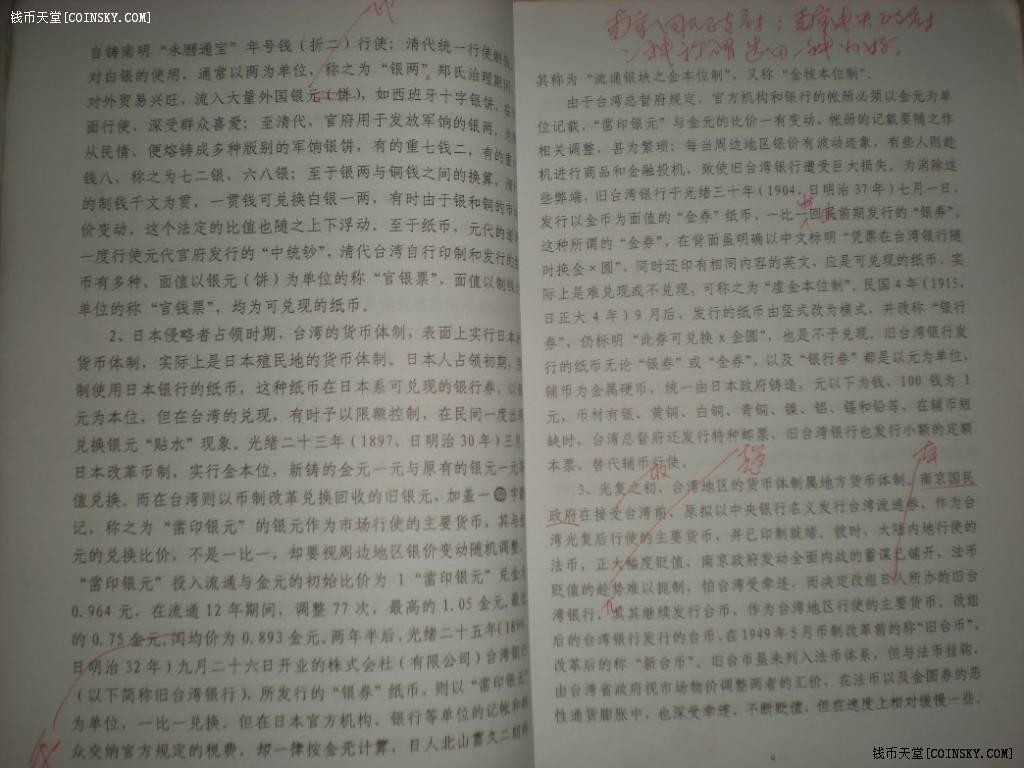 钱币天堂[COINSKY.COM]
自铸南明“永曆通宝”年号钱(折二)行使;清代统一行使制钱
对白银的使用,通常以两为单位,称之为“银两”。郑氏治理期间,
对外贸易兴旺,流入大量外国银元(饼),如西班牙十字银饼,在
面行使,深受群众喜爱;至清代,官府用于发放军饷的银两,为
从民情,便熔铸成多种版别的军饷银饼,有的重七钱二,有的重
钱八,称之为七二银、六八银;至于银两与铜钱之间的换算,清
的制钱千文为贯,一贯钱可兑换白银一两,有时由于银和铜的市
价变动,这个法定的比值也随之上下浮动。至于纸币,元代的
一度行使元代官府发行的“中统钞”,清代台湾自行印制和发行的
币有多种,面值以银元(饼)为单位的称“官银票”,面值以制钱
单位的称“官钱票”,均为可兑现的纸币。
2、日本侵略者占领时期,台湾的货币体制,表面上实行日本
货币体制,实际上是日本殖民地的货币体制。日本人占领初期,
制使用日本银行的纸币,这种纸币在日本系可兑现的银行券,以
元为本位,但在台湾的兑现,有时予以限额控制,在民间一度出现
兑换银元“贴水”现象。光绪二十三年(1897,日明治30年)三月
日本改革币制,实行金本位,新铸的金元一元与原有的银元一元等
值兑换。而在台湾则以币制改革兑换回收的旧银元,加盖一 字
记,称之为“啬印银元”的银元作为市场行使的主要货币,其与
元的兑换比价,不是一比一,却要视周边地区银价变动随机调整,
“啬印银元”投入流通与金元的初始比价为 1“啬印银元”兑金
0.964 元,在流通 12 年期间,调整 77 次,最高的 1.05 金元,最低
的 0.75 金元,闰均价为 0.893 金元,两年半后,光绪二十五年(1899
日明治 32 年)九月二十六日开业的株式会社(有限公司)台湾银行
(以下简称旧台湾银行),所发行的“银券”纸币,则以“啬印银元”
为单位,一比一兑换。但在日本官方机构、银行等单位的记帐和
众交纳官方规定的税费,却一律按金元计算,日人北山富久二郎
其称为“流通银块之金本位制”,又称“金核本位制”。
由于台湾总督府规定,官方机构和银行的帐册必须以金元为单
位记载,“啬印银元”与金元的比价一有变动,帐册的记载要随之作
相关调整,甚为繁琐;每当周边地区银价有波动迹象,有些人则趁
机进行商品和金融投机,致使旧台湾银行遭受巨大损失。为消除这
些弊端,旧台湾银行于光绪三十年(1904,日明治 37年)七月一日,
发行以金币为面值的“金券”纸币,一比一回收前期发行的“银券”。
这种所谓的“金券”,在背面虽明确以中文标明“凭票在台湾银行随
时换金×圆”,同时还印有相同内容的英文,应是可兑现的纸币,实
际上是难兑现或不兑现,可称之为“虚金本位制”。民国 4 年(1915,
日正大 4 年)9 月后,发行的纸币由竖式改为横式,并改称“银行
券”,仍标明“此券可兑换 x 金圆”,也是不予兑现,旧台湾银行发
行的纸币无论“银券”或“金券”,以及“银行券”都是以元为单位,
辅币为金属硬币,统一由日本政府铸造,元以下为钱,100 钱为 1
元,币材有银、黄铜、白铜、青铜、镍、铝、锡和铅等,在辅币短
缺时,台湾总督府还发行特种邮票,旧台湾银行也发行小额的定额
本票,替代辅币行使。
3、光复之初,台湾地区的货币体制属地方货币体制,南京国民
政府在接受台湾前,原拟以中央银行名义发行台湾流通券,作为台
湾光复后行使的主要货币,并已印制就绪。彼时,大陆内地行使的
法币,正大幅度贬值,南京政府发动全面内战的蓄谋已铺开,法币
贬值的趋势难以扼制,怕台湾受牵连,而决定改组日人所办的旧台
湾银行,其继续发行台币,作为台湾地区行使的主要货币。改组
后的台湾银行发行的台币,在1949年5月币制改革前的称“旧台币”,
改革后的称“新台币”。旧台币虽未列入法币体系,但与法币挂钩,
由台湾省政府视市场物价调整两者的汇价,在法币以及金圆券的恶
性通货膨胀中,也深受牵连,不断贬值,但在速度上相对缓慢一些,
9
钱币天堂[COINSKY.COM]